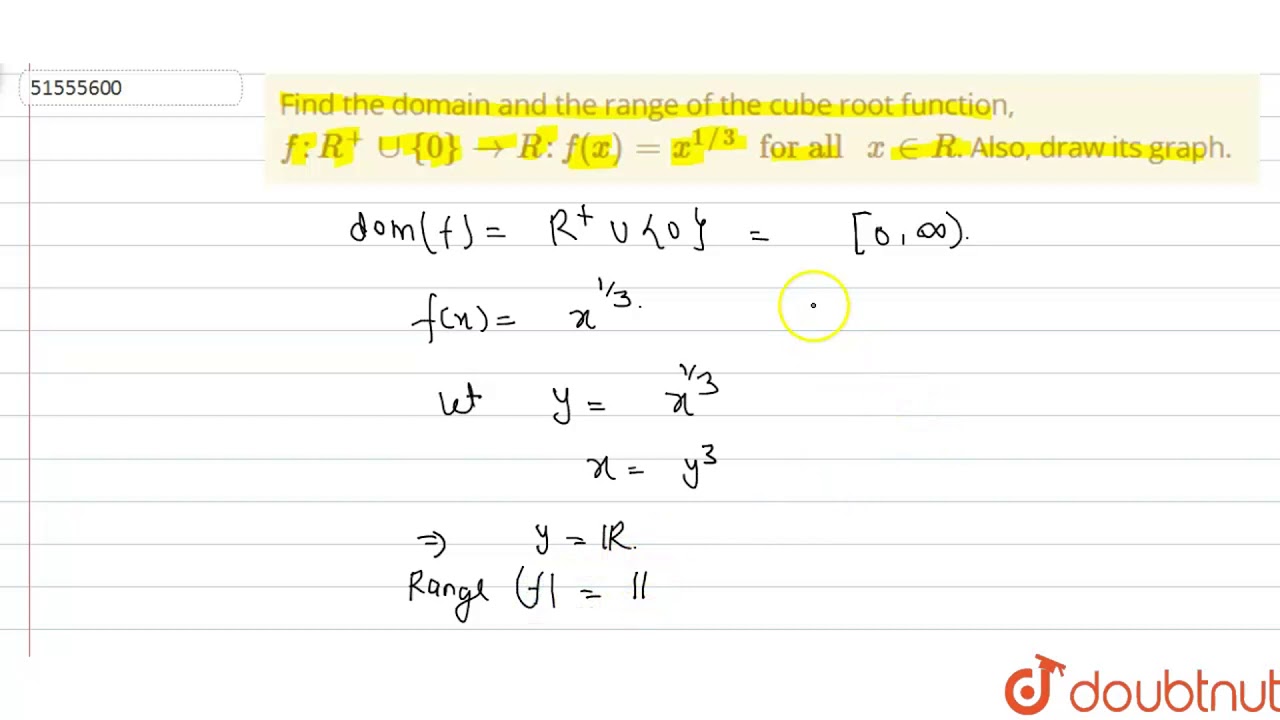 51555600
Find the domain and the range of the cube root function,
f : R⁺ ∪ {0} → R : f(x) = x^{1/3} for all x ∈ R. Also, draw its graph.
dom(f) = R⁺ ∪ {0} = [0, ∞).
f(x) = x^{1/3}.
let y = x^{1/3}
x = y³
⇒ y = ℝ.
Range (f) =
doubtnut